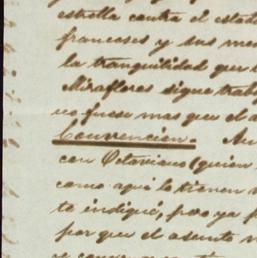 estrella contra el estado
franceses y sus me
la tranquilidad que
Miraflores sigue trab
no fuese mas que el a
Convencion. Au
con Octaviano (quien
como aqui lo tienen
te indiqué, pero ya
por que el asunto